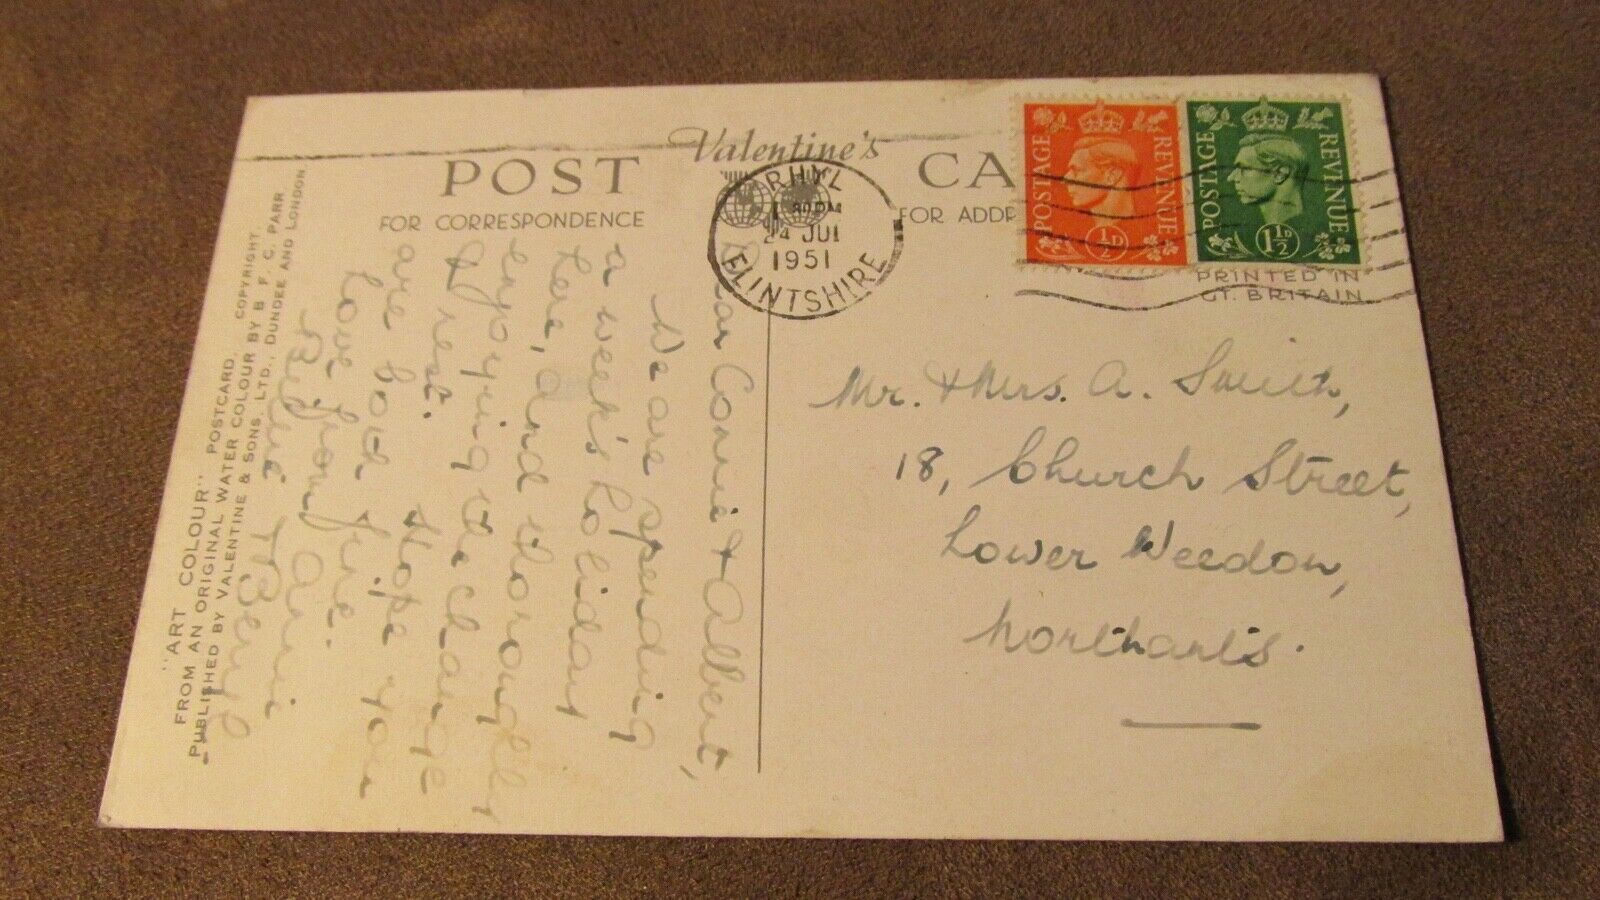 Valentine's
POST CA
FOR CORRESPONDENCE
FOR ADDR
RHYL
PM
24 JUL
1951
FLINTSHIRE
POSTAGE REVENUE
½D
POSTAGE REVENUE
1½D
PRINTED IN
GT. BRITAIN
Dear Connie & Albert,
We are spending
a week's holiday
here, and thoroughly
enjoying the change
& rest. Hope you
are both fine.
Love from Annie
& Beryl.
Mr. & Mrs. A. Smith,
18, Church Street,
Lower Weedon,
Northants.
"ART COLOUR" POSTCARD. COPYRIGHT.
FROM AN ORIGINAL WATER COLOUR BY B. F. C. PARR
PUBLISHED BY VALENTINE & SONS. LTD., DUNDEE AND LONDON